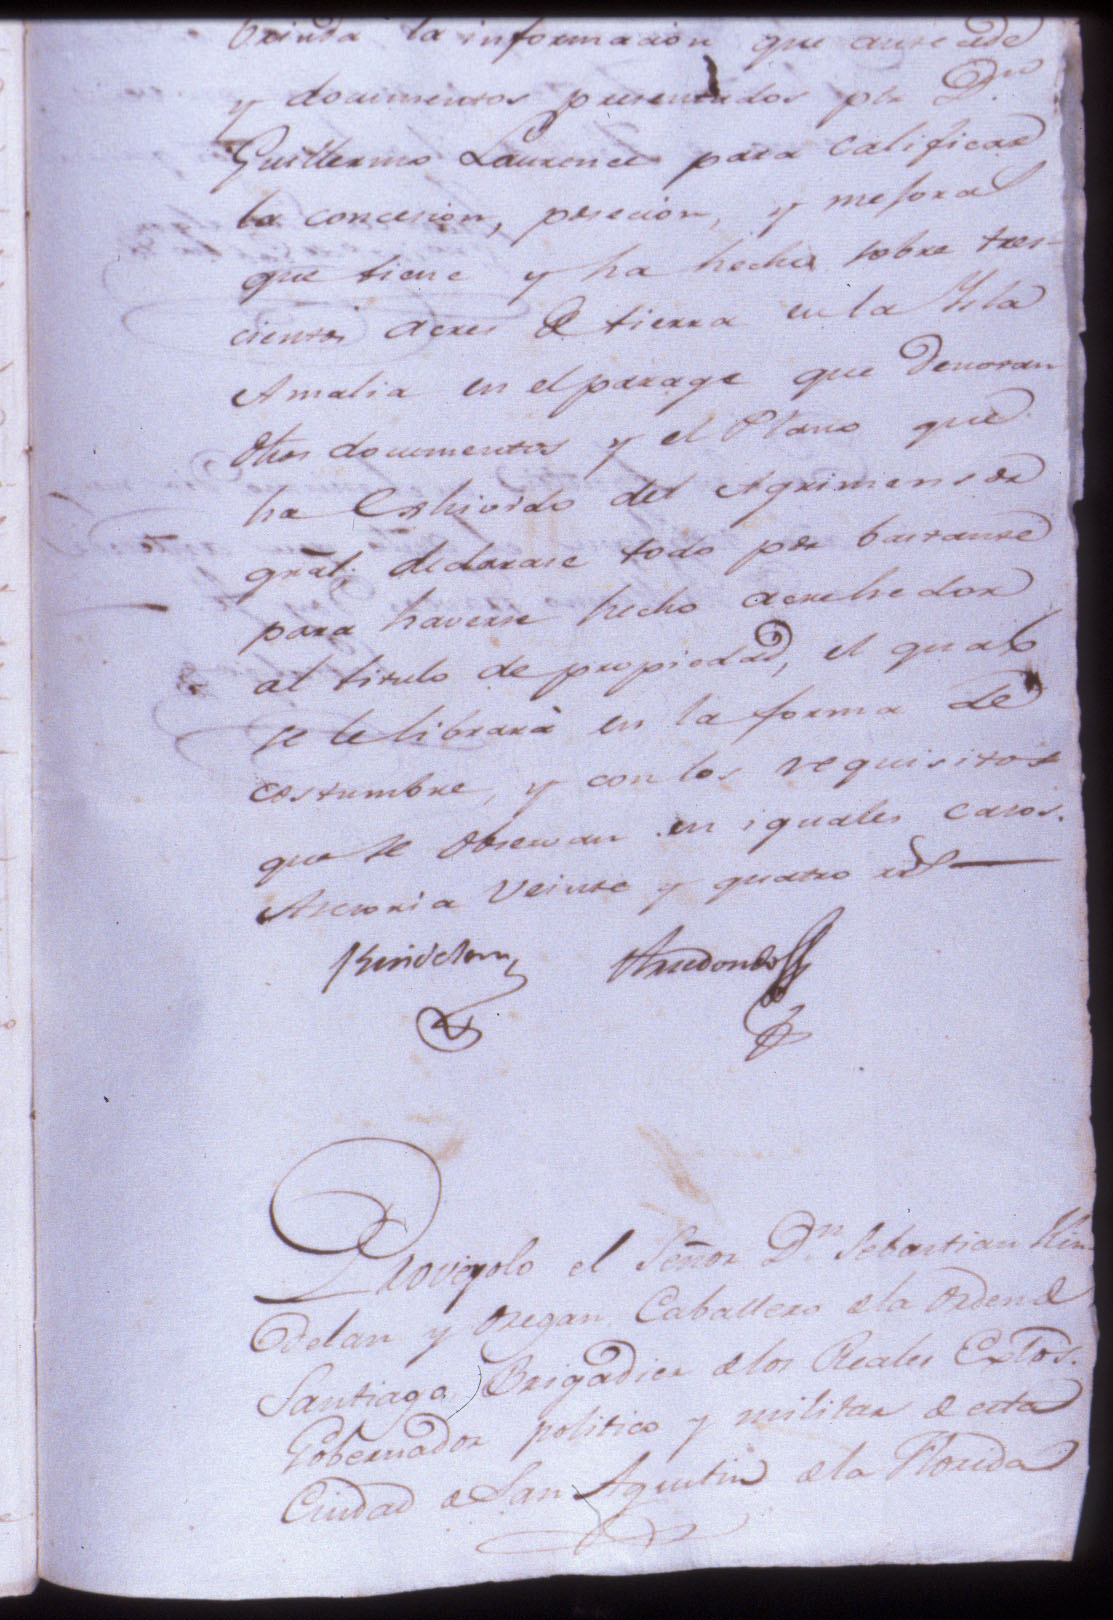 la informacion que antecede
y documentos presentados por Dn.
Guillermo Laurence para calificar
la concesion, posecion, y mejora
que tiene y ha hecho sobre tres-
cientos acres de tierra en la Ysla
Amalia en el parage que denotan
dhos documentos y el Plano que
ha Exhivido del Agrimensor
gral; declarase todo por bastante
para haverse hecho acrehedor
al titulo de propiedad, el qual
se le librarà en la forma de
costumbre, y con los requisitos
que se observan en iguales casos.
Asesoria veinte y quatro rs
Kindelan Arredondo
Proveyolo el Señor Dn. Sebastian Kin
delan y Oregan Caballero de la Orden de
Santiago Brigadier de los Reales Extos.
Gobernador politico y militar de esta
Ciudad de San Agustin de la Florida